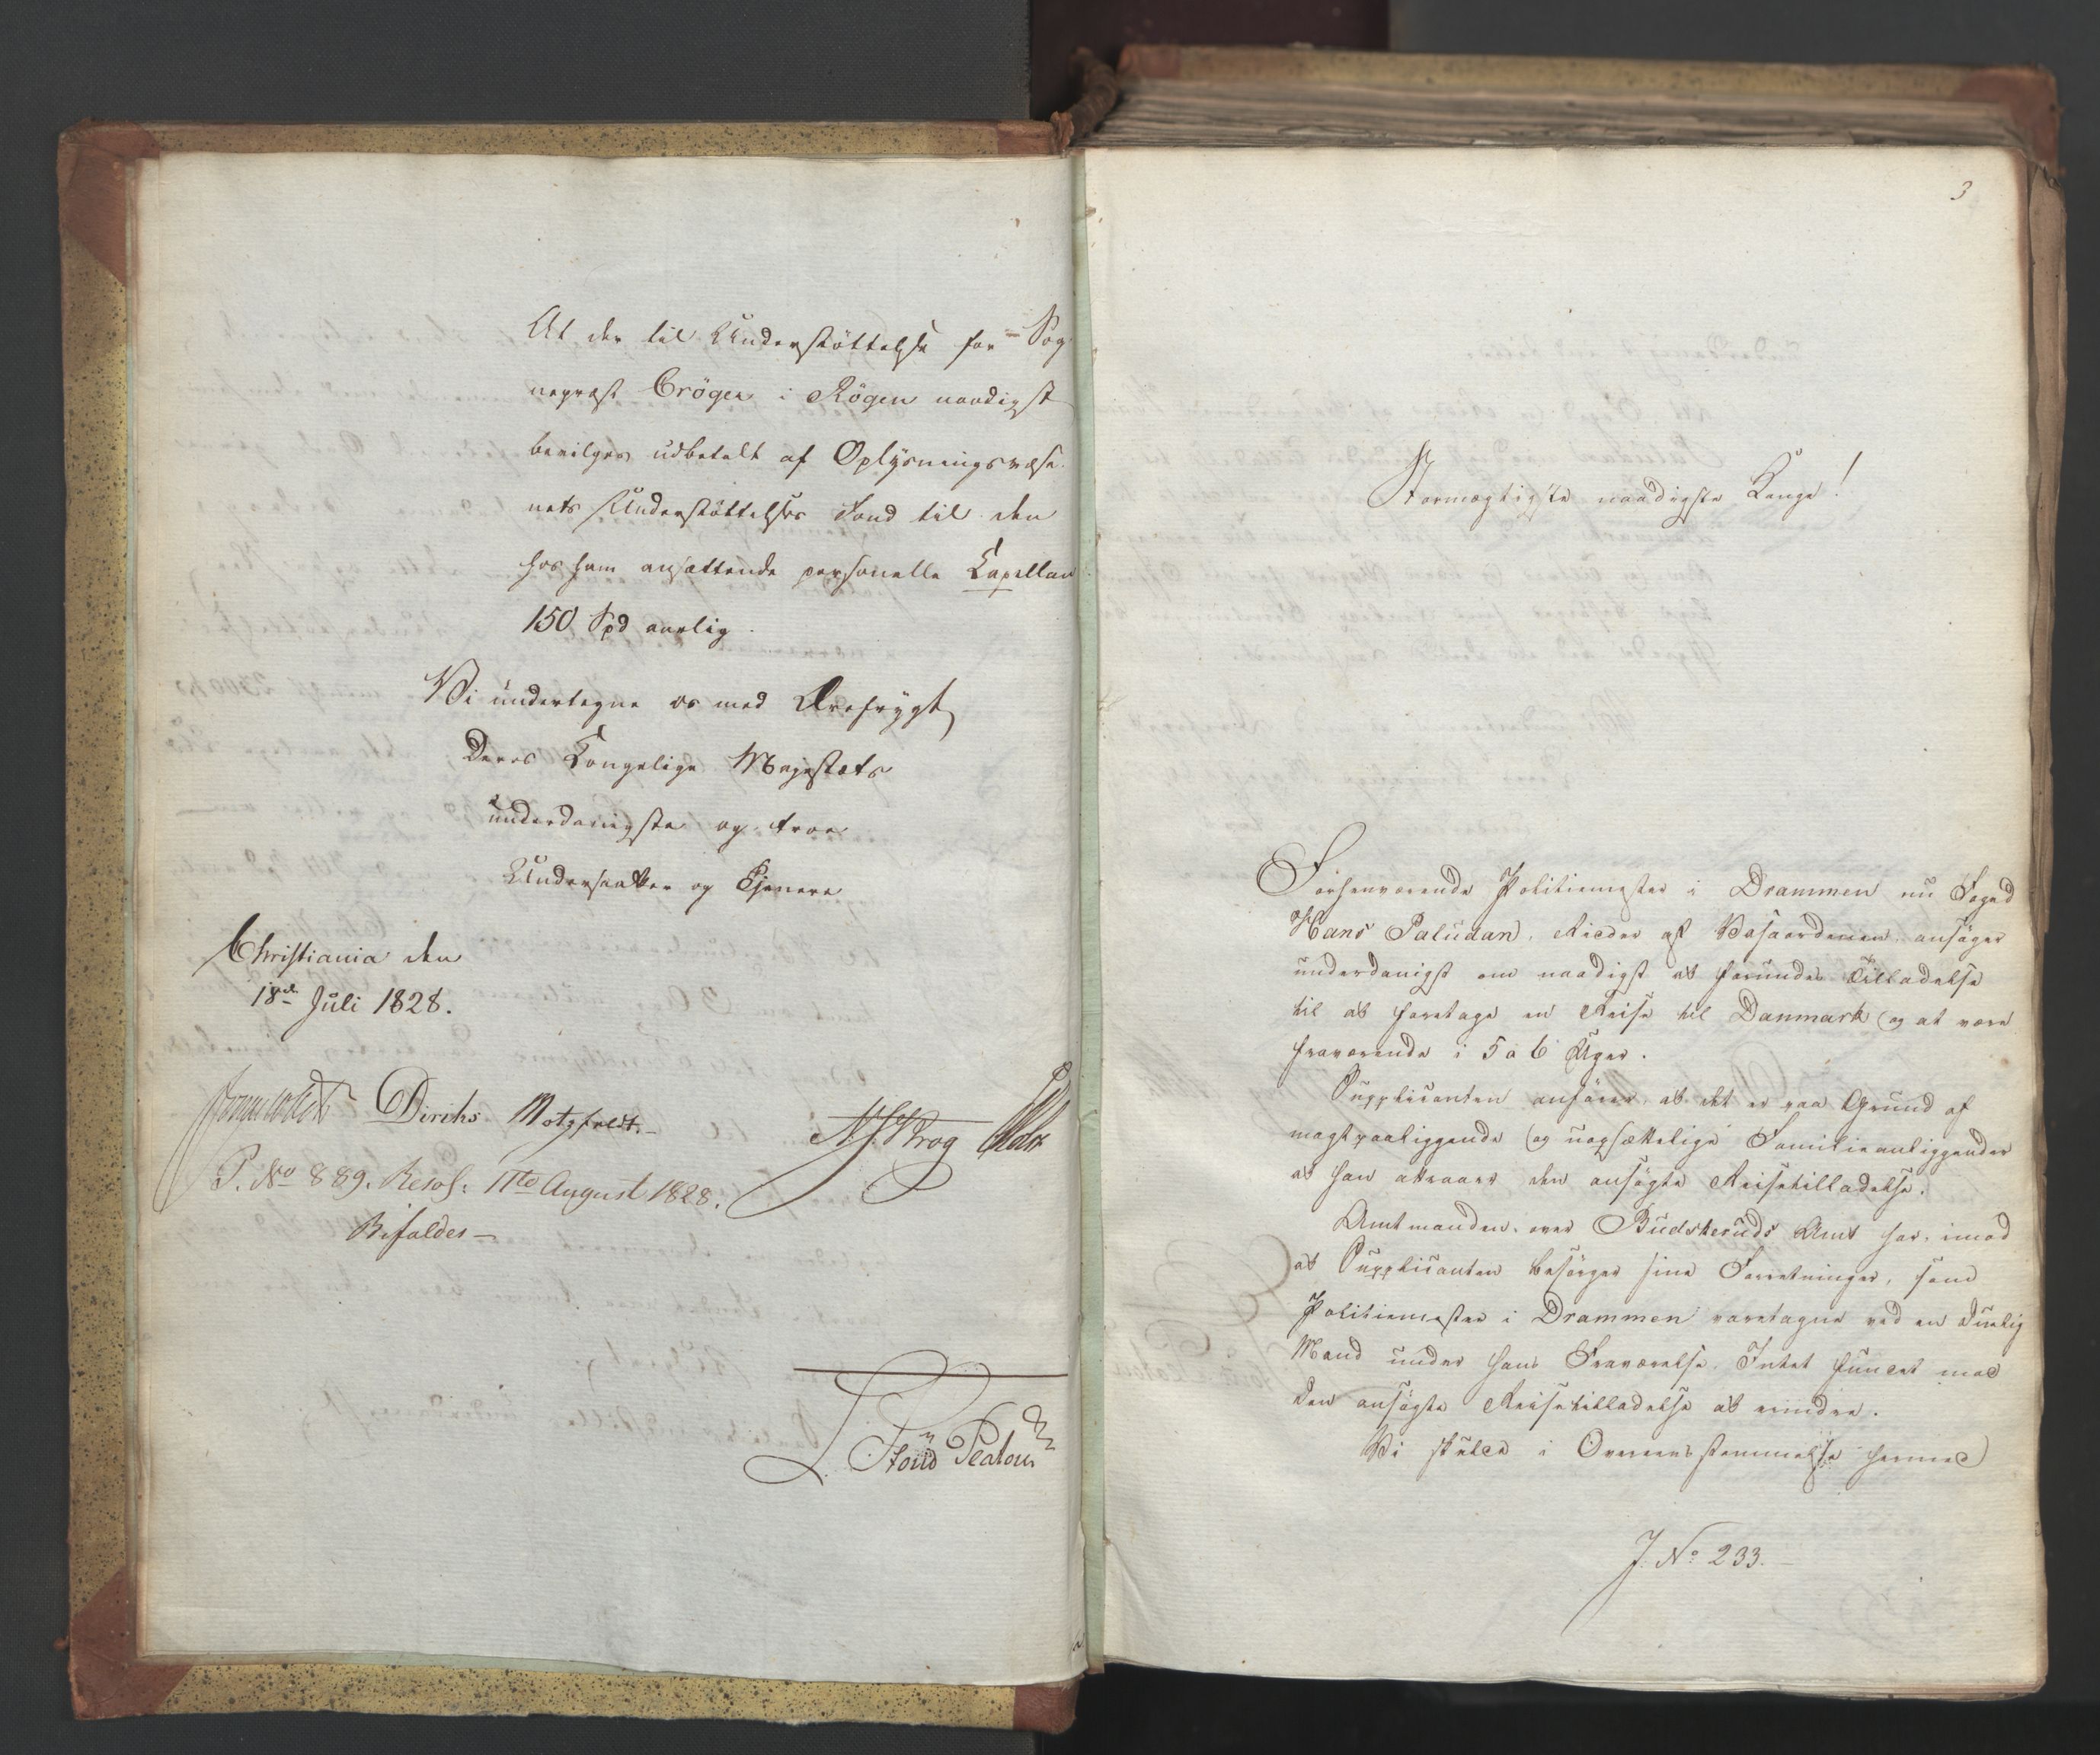 At der til Understöttelse for Sog-
nepræst Cröger i Rögen naadigst
bevilges udbetalt af Oplysningsvæse-
nets Understöttelses Fond til den
hos ham ansættende personelle Capellan
150 Spd aarlig.
Vi undertegne os med Ærefrygt
Deres Kongelige Majestæts
underdanigste og troe
Undersaatter og Tjenere
Christiania den
18de Juli 1828.
Diriks Motzfeldt.
P. No 889. Resol: 11te August 1828.
Bifaldes
3
Stormægtigste naadigste Konge!
Forhenværende Politiemester i Drammen nu Foged
Hans Paludan, Ridder af Vasaordenen, ansöger
underdanigst om naadigst at forundes Tilladelse
til at foretage en Reise til Danmark og at være
fraværende i 5 a 6 Uger.
Supplicanten anförer, at det er paa Grund af
magtpaaliggende og uopsættelige Familieanliggender
at han attraaer den ansögte Reisetilladelse.
Amtmanden over Budskeruds Amt har, imod
at Supplicanten besörger sine Forretninger, som
Politiemester i Drammen varetagne ved en duelig
Mand under hans Fraværelse, Intet fundet mod
den ansögte Reisetilladelse at erindre.
Vi skulde i Overeensstemmelse hermed
J. No 233.